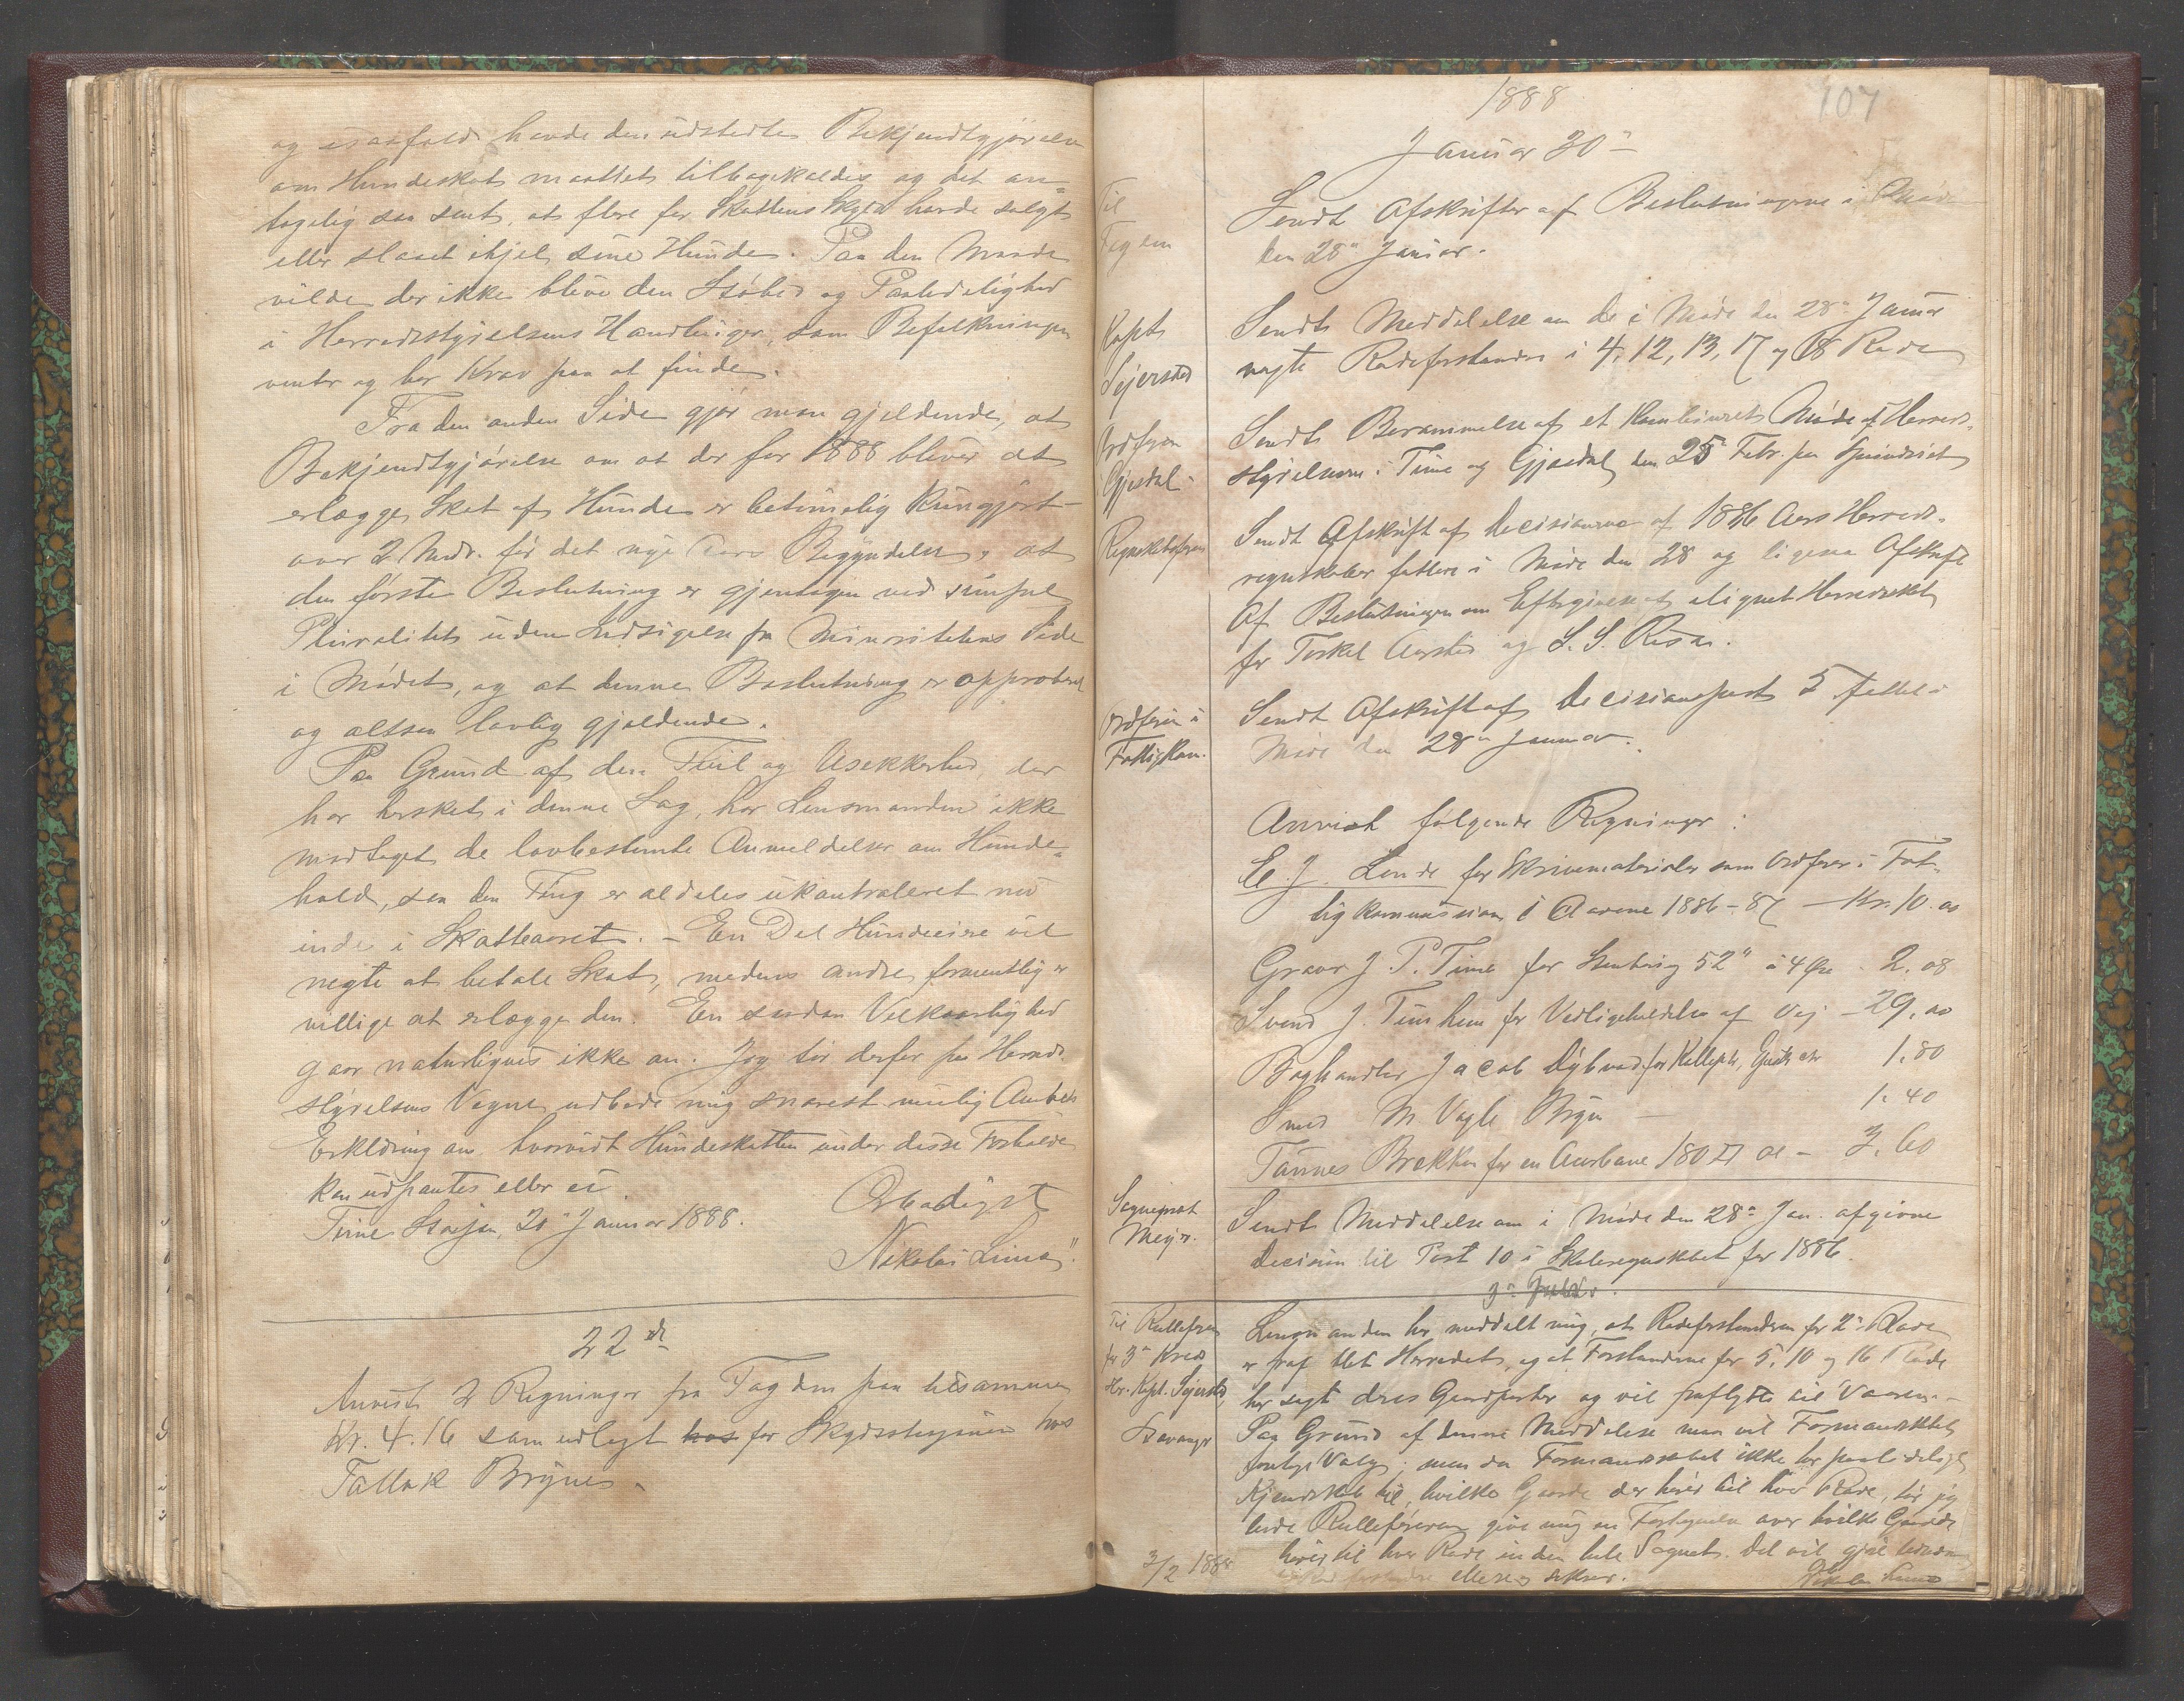 og isaafald havde den udstedte Bekjendtgjørelse
om Hundeskat maattet tilbagekaldes og det an-
tagelig saa sent, at flere for Skattens Skyld havde solgt
eller slaaet ihjel sine Hunde. Paa den Maade
vilde der ikke blive den Støhed og Paalidelighed
i Herredsstyrelsens Handlinger, som Befolkningen
venter og har Krav paa at finde.
Fra den anden Side gjør man gjeldende, at
Bekjendtgjørelse om at der for 1888 bliver at
erlægge Skat af Hunde er betimelig kungjort
over 2 Mdr. før det nye Aars Begyndelse, at
den første Beslutning er gjentagen med simpel
Pluralitet uden Indsigelse fra Minoritetens Side
i Mødet, og at denne Beslutning er approberet
og altsaa lovlig gjeldende.
Paa Grund af den Tvil og Usikkerhed der
har hersket i denne Sag, har Lensmanden ikke
modtaget de lovbestemte Anmeldelser om Hunde-
hold, saa den Ting er aldeles ukontroleret nu
inde i Skatteaaret. - En Del Hundeeiere vil
negte at betale Skat, medens andre formentlig er
villige at erlægge den. En saadan Vilkaarlighed
gaar naturligvis ikke an. Jeg tør derfor paa Herreds
styrelsens Vegne udbede mig snarest mulig Amtets
Erklæring om hvorvidt Hundeskatten under disse Forholde
kan udpantes eller ei
Time Station, 20 Januar 1888. Ærbødigst
Nikolai Lima".
22de
Anvist 2 Regninger fra Fogden paa tilsammen
Kr. 4.16 som udlagt hos for Skydsstasjonen hos
Tollak Brynes.
1888 107
Januar 30te
Til
Fogden
Sendt Afskrifter af Beslutningerne i Møde
den 28de Januar.
Kapt.
Sejersted
Sendt Meddelelse om de i Møde den 28de Januar
valgte Rodeforstandere i 4, 12, 13, 17 og 18 Rode
Ordføren
Gjesdal
Sendt Berammelse af et Kombineret Møde af Herreds-
styrelserne i Time og Gjæsdal den 25de Febr. paa
Regnskabsføren
Sendt Afskrift af Decisionerne af 1886 Aars Herreds-
regnskaber fattede i Møde den 28 og ligesaa Afskrift
af Beslutningen om Eftergivelse af alignet Herredsskat
for Torkel Aarstad og S. S. Rosa.
Ordføren i
Fattigkom.
Sendt Afskrift af Decisionspost 5 fattet i
Møde den 28de Januar.
Anvist følgende Regninger:
E. J. Linde for Skrivematerialer som Ordfører i Fat-
tigkommissionen i Aarene 1886-87 — Kr. 10.00
Graver J. P. Time for Stenbrig 52" á 4 Øre - 2.08
Svend J. Timshem for Vedligeholdelse af Vei - 29.00
Boghandler Jacob Dybvad for 1.80
Smed M. Vagle Bryn — 1.40
Tønnes Brekke for en Auerbane 180 - 3.60
Sogneprest
Meyer.
Sendt Meddelelse om i Møde den 28de Jan. afgivne
Decision til Post 10 i Skoleregnskabet for 1886.
3de Febr.
Til Rulleføren
for 3de Kreds
Hr. Kapt. Sejersted,
Stavanger
Lensmanden har meddelt mig, at Rodeforstanderen for 2de Rode
er fraflyttet Herredet, og at Forstanderne for 5, 10 og 16 Rode
har solgt deres Gaardparter og vil fraflytte til Vaaren. -
Paa Grund af denne Meddelelse maa vel Formandskabet
foretage Valg; men da Formandskabet ikke har paalideligt
Kjendskab til, hvilke Gaarde der hører til hver Rode, tør jeg
bede Rulleføreren give mig en Fortegnelse over hvilke Gaarde
hører til hver Rode inden hele Sognet. Det vil gjøre
3/2 1888
Nikolai Lima